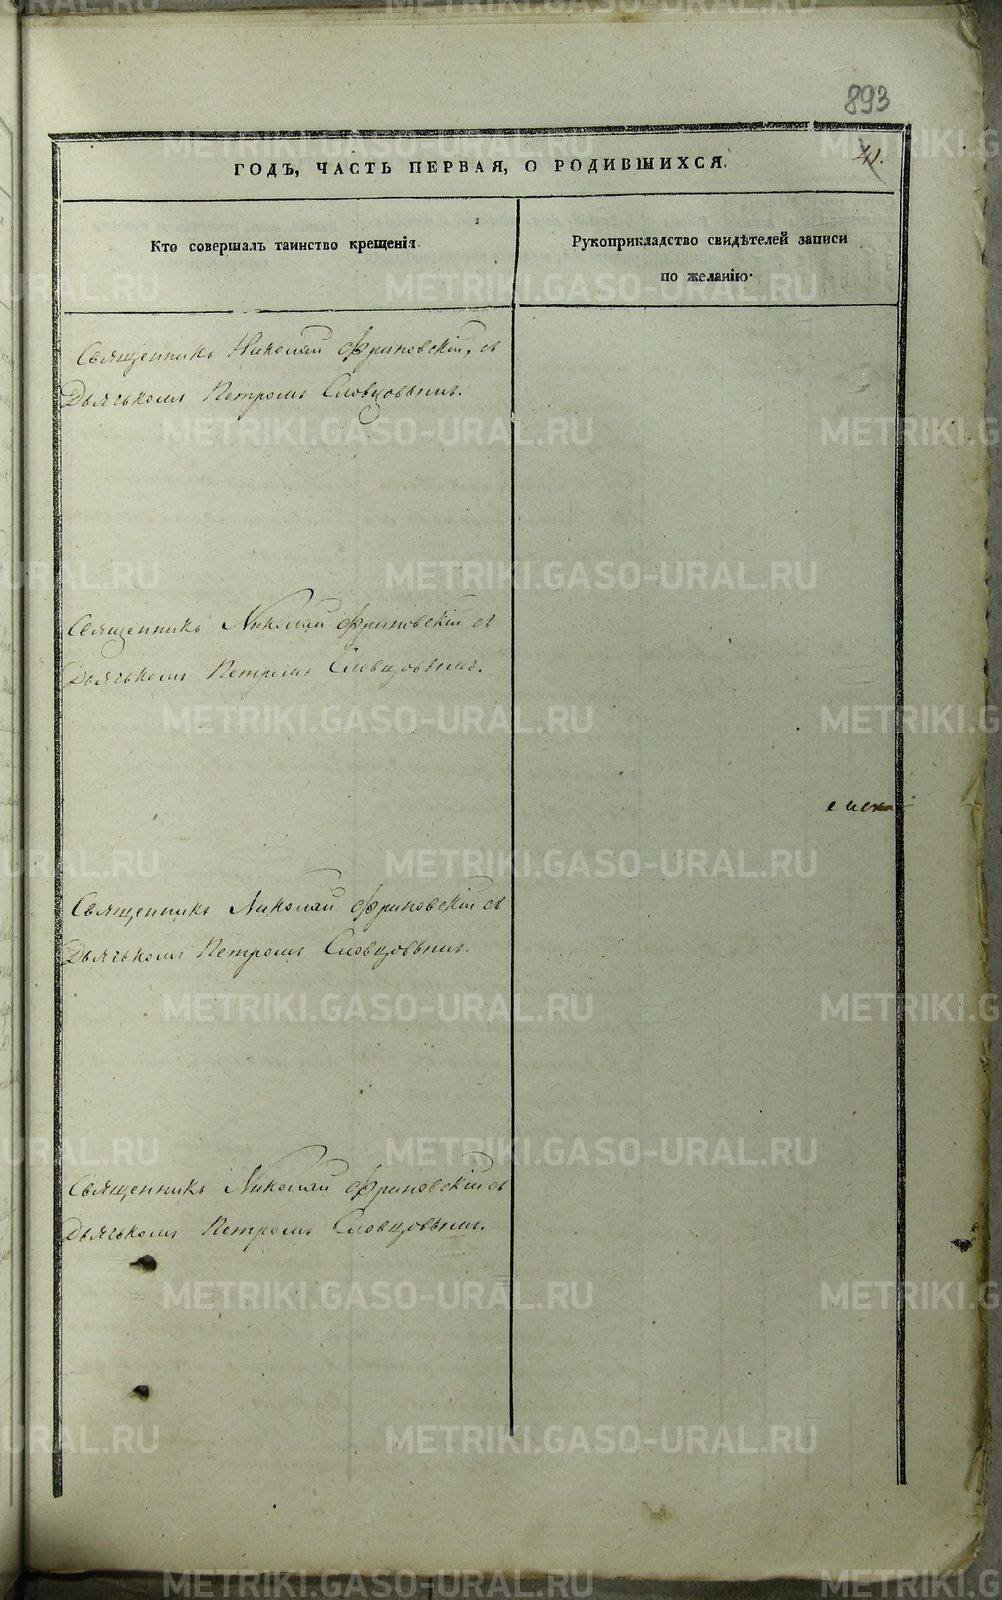 893
41.
ГОДЪ, ЧАСТЬ ПЕРВАЯ, О РОДИВШИХСЯ.
Кто совершалъ таинство крещенія.
Рукоприкладство свидѣтелей записи
по желанію.
Священникъ Николай Фриновскій, съ
Дьячькомъ Петромъ Словцовымъ.
Священникъ Николай Фриновскій съ
Дьячькомъ Петромъ Словцовымъ.
Священникъ Николай Фриновскій съ
Дьячькомъ Петромъ Словцовымъ.
Священникъ Николай Фриновскій съ
Дьячькомъ Петромъ Словцовымъ.
METRIKI.GASO-URAL.RU